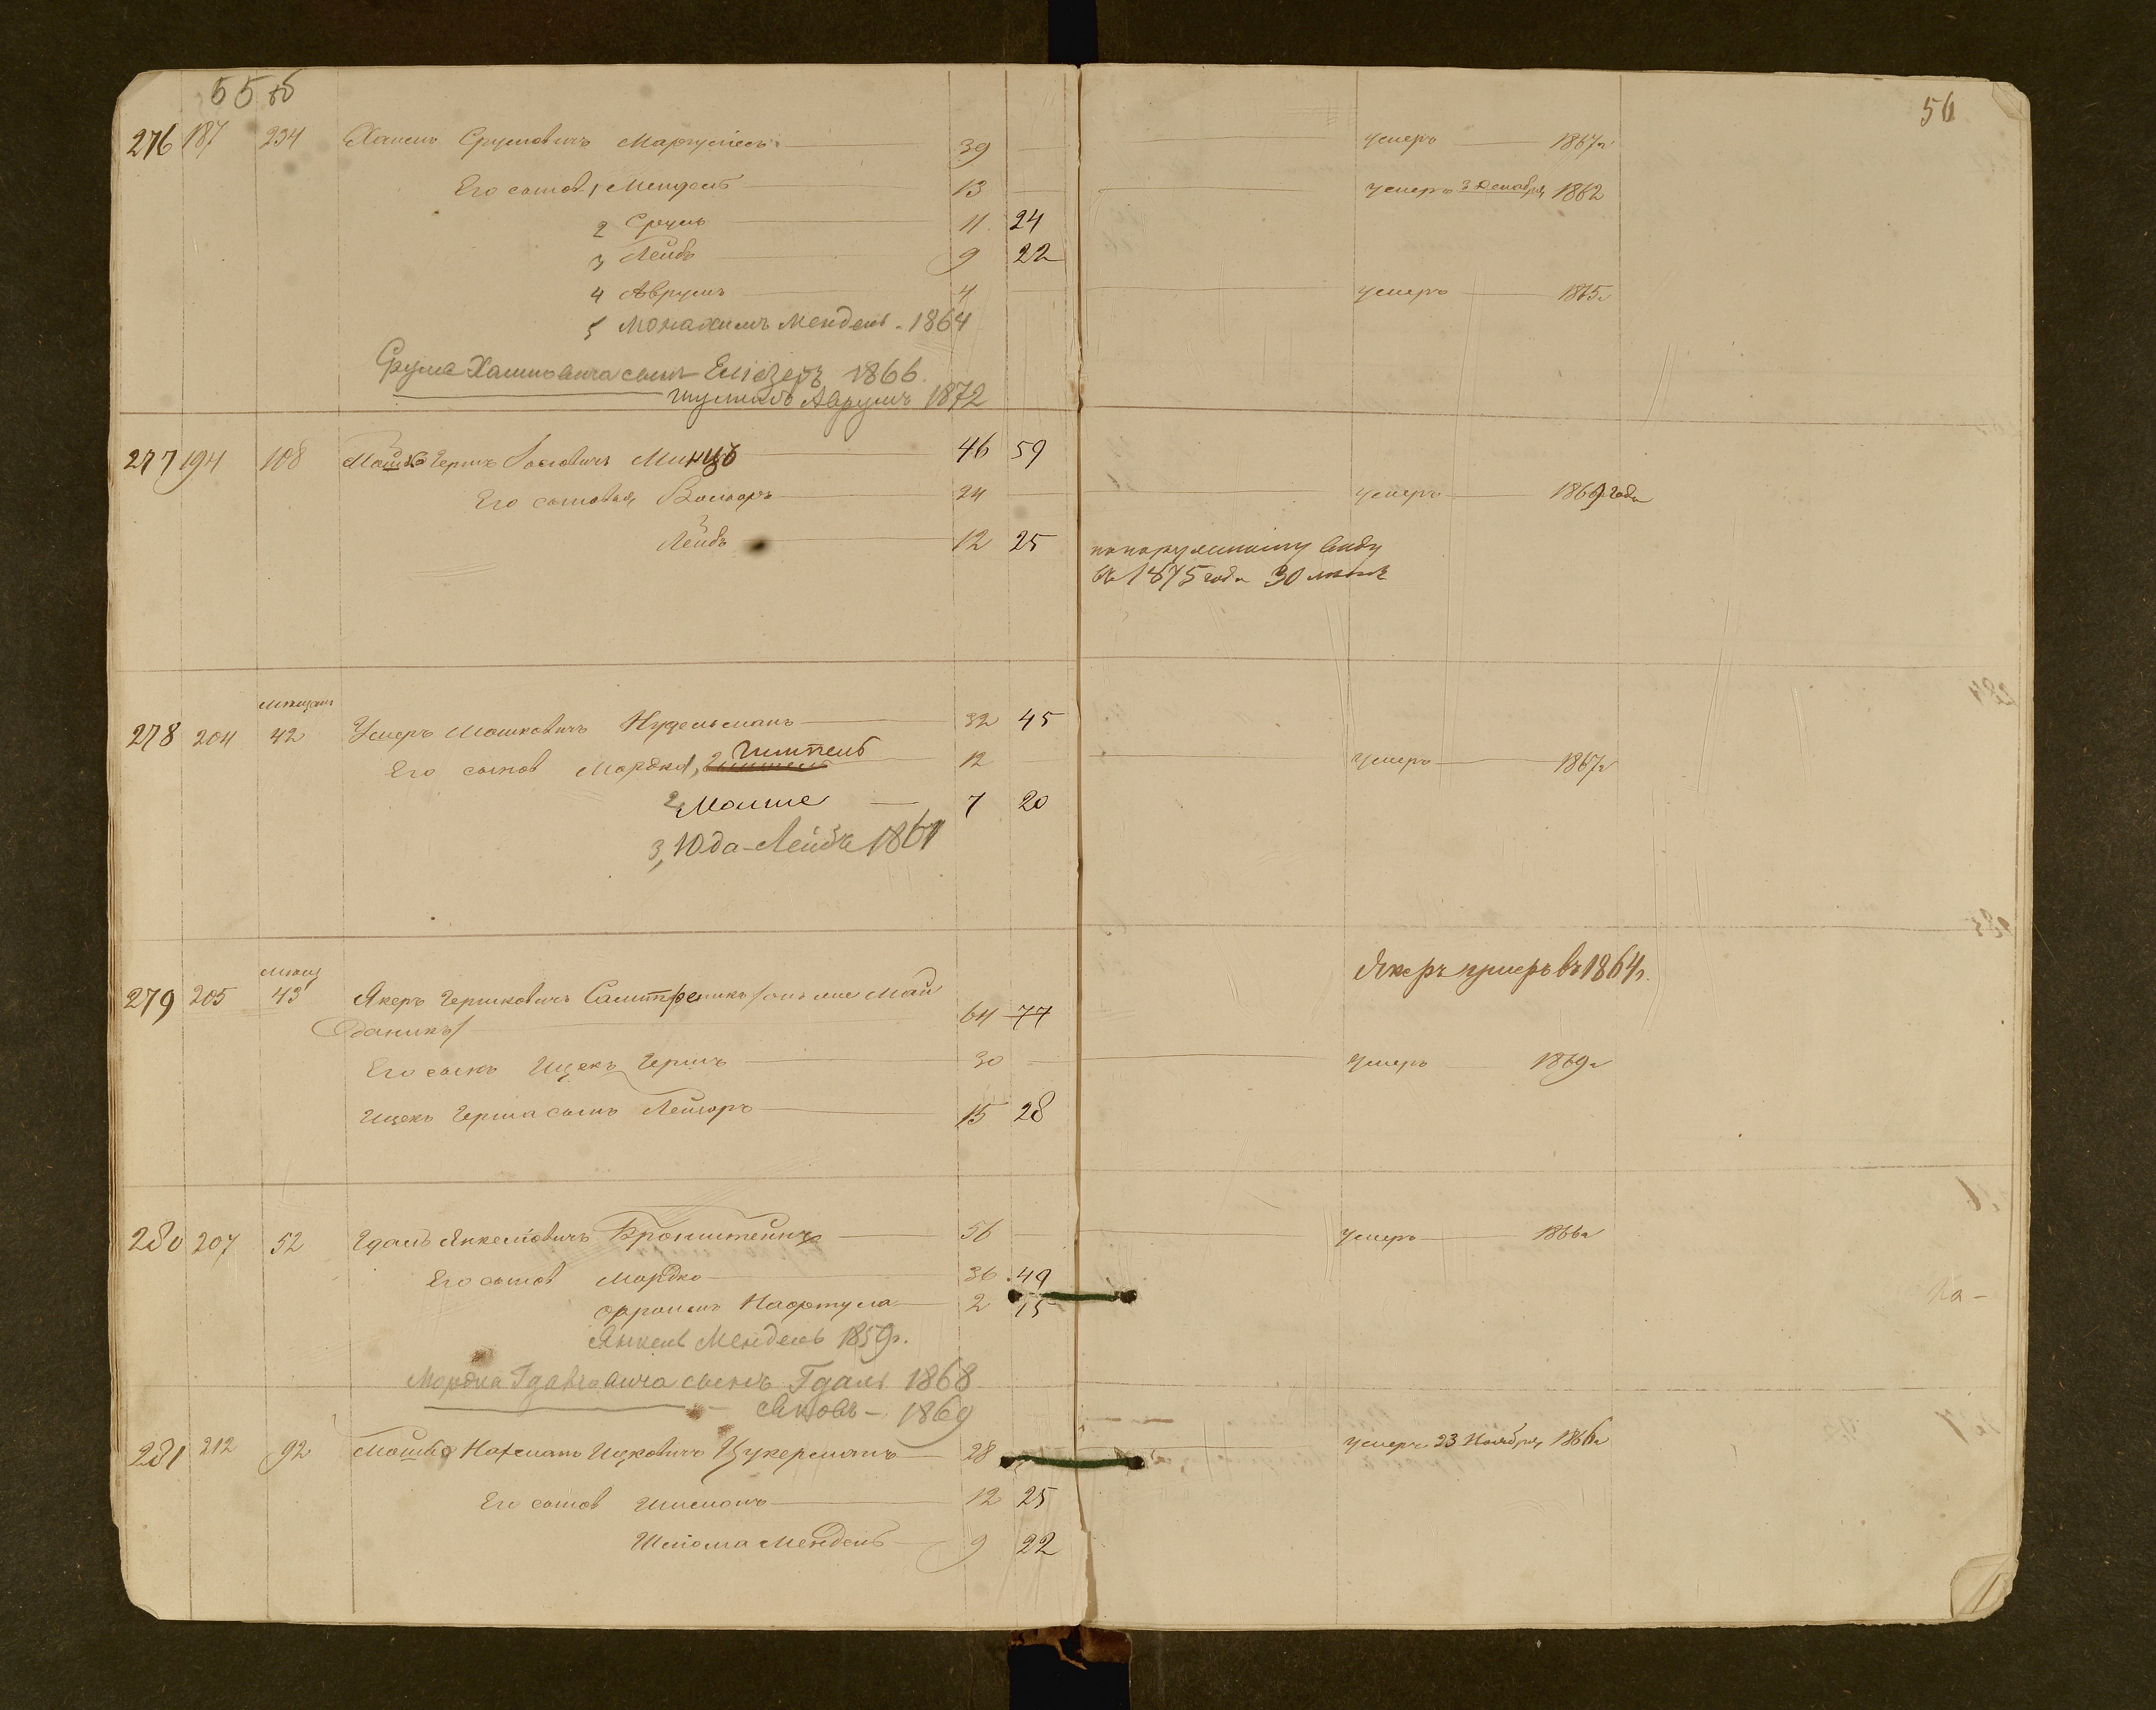 55 об
56
276 187 234 Хаимъ Сруловичъ Маргулисъ 39 умеръ 1867г
Его сынов. 1 Мендель 13 умеръ 3 декабря 1862
2 Сруль 11 24
3 Лейбъ 9 22
4 Аврумъ 4 умеръ 1865г
5 Монахимъ Мендель - 1864
Срула Хаимовича сынъ Елiезеръ 1866
Аврумъ 1872
277 194 108 Мошко Гершъ Минцъ 46 59
Его сыновья 24 умеръ 1869 года
Лейбъ 12 25
1875 года 30
278 204 42 Умеръ Мошковичъ Нудельманъ 32 45
Его сынов Мордко, 12 умеръ 1867г
2, Мошие 7 20
3, Юда-Лейбъ 1861
279 205 43 Якеръ Гершковичъ /онъ же Май
даникъ/ 64 77
Якеръ умеръ въ 1864г.
Его сынъ Ицекъ Гершъ 30 умеръ 1869г
Ицекъ Герша сынъ Лейзоръ 15 28
280 207 52 Гдаль Янкелiовичъ Бронштейнъ 56 умеръ 1866г
Его сынов Мордко 36 49
Фроимъ Нафтула 2 15
Янкель Мендель 1859г.
Мордка Гдалiовича сынъ Гдаль 1868
Яковъ - 1869
281 212 92 Мошко Нахманъ Ицковичъ Цукерманъ 28 умеръ 23 Ноября 1866г
Его сынов Шлiома 12 25
Шлiома Мендель 9 22